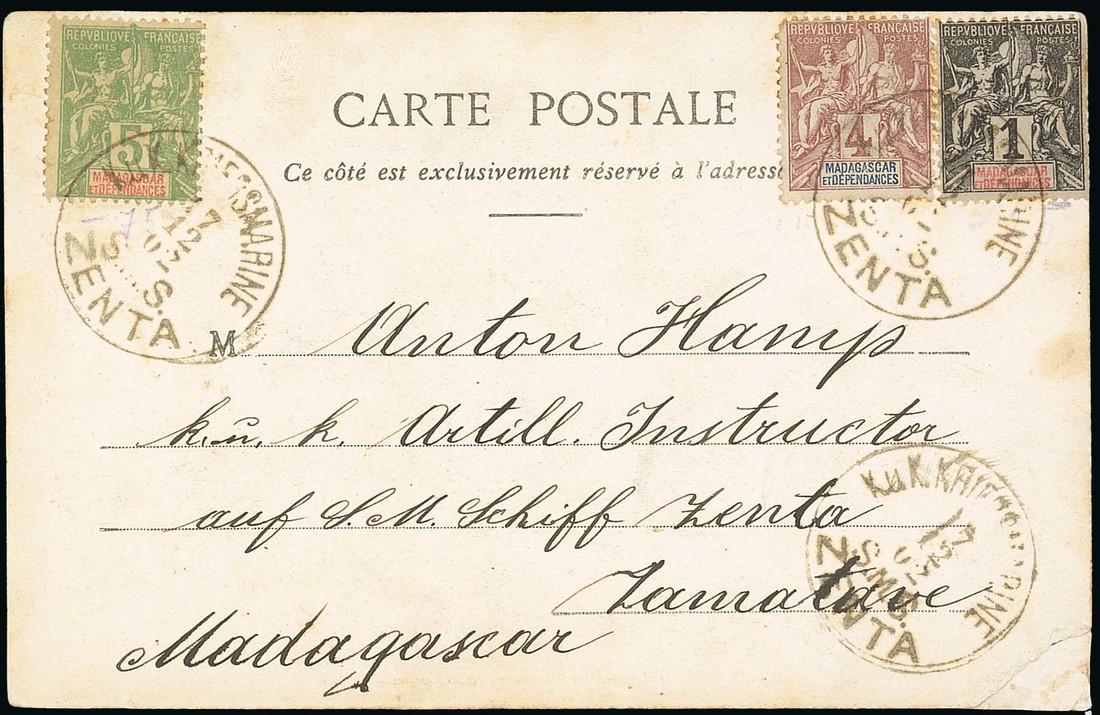 REPVBLIQUE FRANÇAISE
COLONIES POSTES
5
MADAGASCAR
ET DÉPENDANCES
REPVBLIQUE FRANÇAISE
COLONIES POSTES
4
MADAGASCAR
ET DÉPENDANCES
REPVBLIQUE FRANÇAISE
COLONIES POSTES
1
MADAGASCAR
ET DÉPENDANCES
CARTE POSTALE
Ce côté est exclusivement réservé à l'adresse
K. KRIEGSMARINE
7
12
S.M.S.
ZENTA
S.
ZENTA
M Anton Hamp
k. u. k. Artill. Instructor
auf S. M. Schiff Zenta
Tamatave
Madagascar
K.u.K. KRIEGSMARINE
7
12
S.M.S.
ZENTA